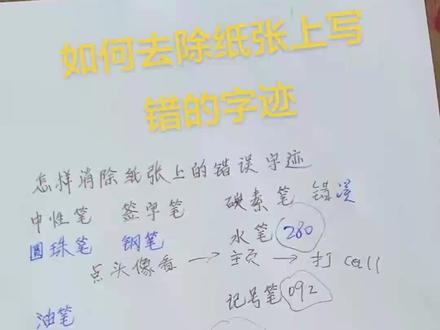 如何去除纸张上写
错的字迹
怎样消除纸张上的错误字迹
中性笔 签字笔 碳素笔 错误
圆珠笔 钢笔 水笔 280
点头像看→主页→打call
记号笔 092
油笔